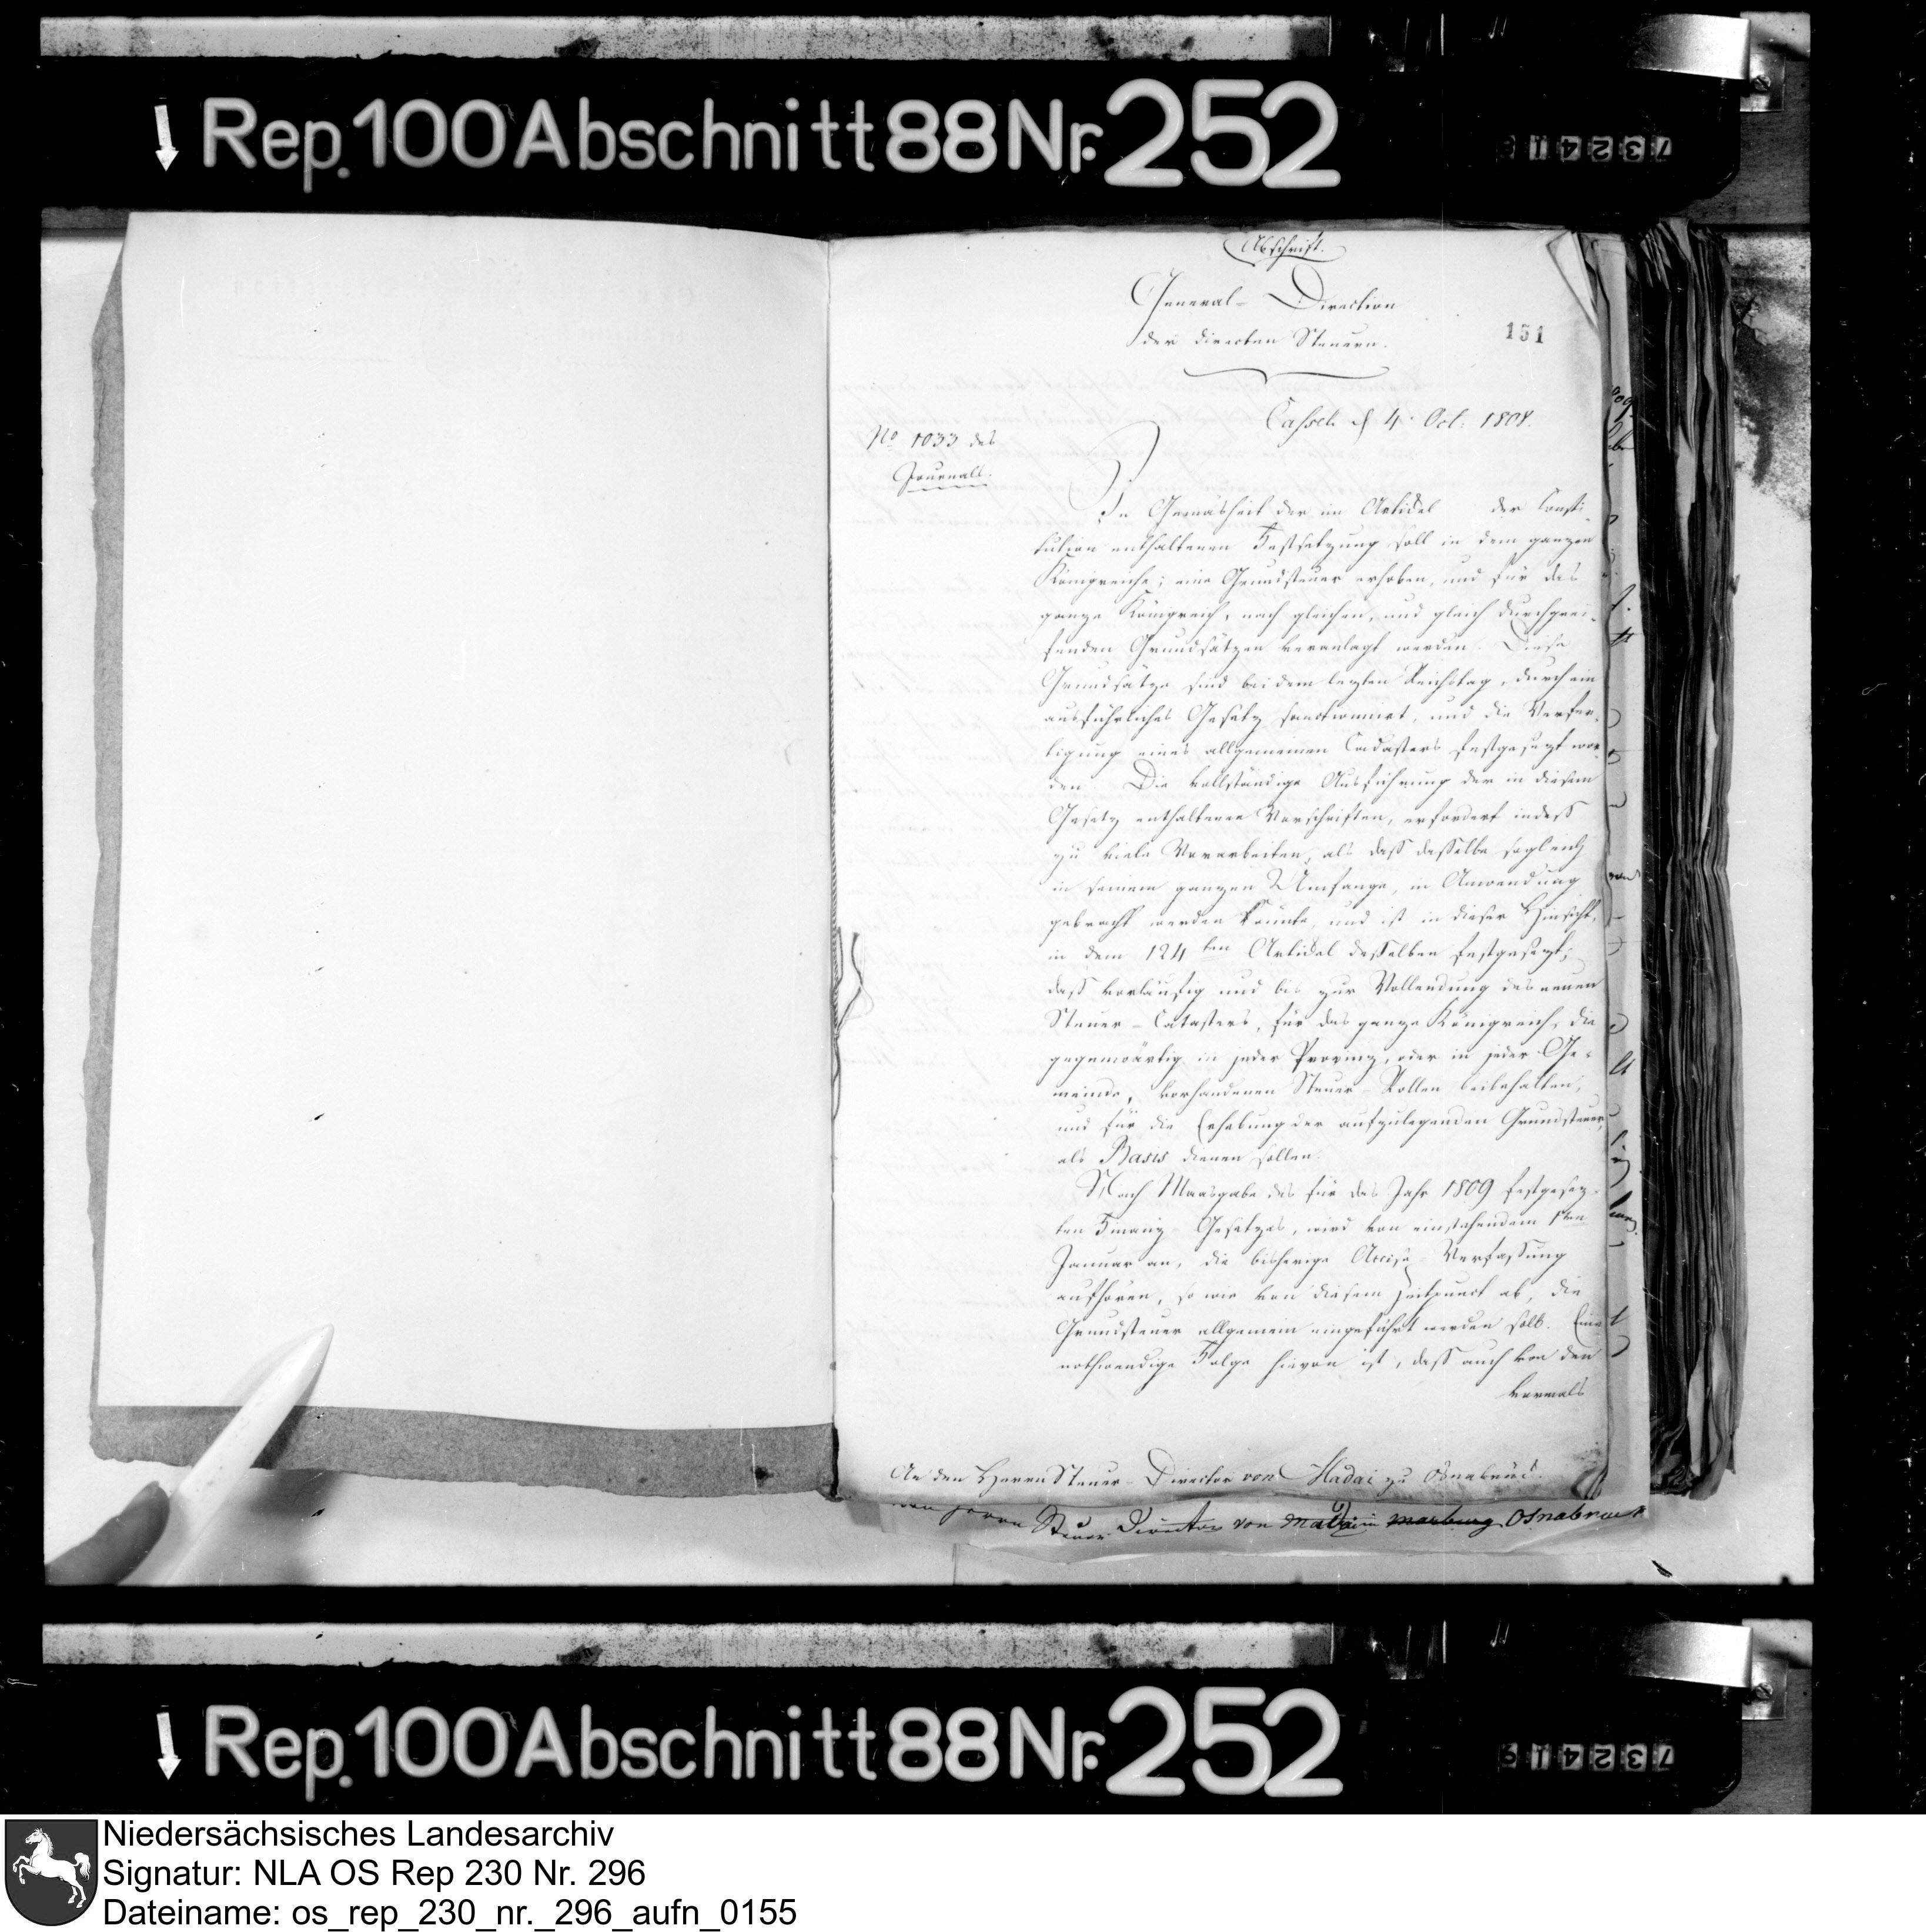 Rep. 100 Abschnitt 88 Nr. 252
Abschrift.
General-Direction
der directen Steuern.
151
Cassel d 4. Oct. 1808.
No 1033 des
Journals.
In Gemäsheit der im Artickel der Consti-
tution enthaltenen Festsetzung soll in dem ganzen
Königreiche; eine Grundsteuer erhoben, und für das
ganze Königreich, nach gleichen, und gleich durchgrei-
fenden Grundsätzen veranlagt werden. Diese
Grundsätze sind bei dem lezten Reichstag, durch ein
ausführliches Gesetz sanctionnirt, und die Verfer-
tigung eines allgemeinen Cadasters festgesezt wor-
den. Die vollständige Ausführung der in diesem
Gesetz enthaltenen Vorschriften, erfordert indeß
zu viele Vorarbeiten, als daß dasselbe sogleich
in seinem ganzen Umfange, in Anwendung
gebracht werden könnte, und ist in dieser Hinsicht,
in dem 124ten Artickel desselben festgesezt;
daß vorläufig und bis zur Vollendung des neuen
Steuer-Catasters, für das ganze Königreich, die
gegenwärtig in jeder Provinz, oder in jeder Ge-
meinde, vorhandenen Steuer-Rollen beibehalten,
und für die Erhebung der aufzulegenden Grundsteuer,
als Basis dienen sollen.
Nach Maasgabe des für das Jahr 1809 festgesez-
ten Finanz-Gesetzes, wird von einstehendem 1ten
Januar an, die bisherige Accise-Verfassung
aufhören, so wie von diesem Zeitpunct ab, die
Grundsteuer allgemein eingeführt werden soll. Eine
nothwendige Folge hievon ist, daß auch von den
vormals
An den Herrn Steuer-Director von Madai zu Osnabrück.
Herrn Steuer Director von Madai in Marburg Osnabrück
Rep. 100 Abschnitt 88 Nr. 252
Niedersächsisches Landesarchiv
Signatur: NLA OS Rep 230 Nr. 296
Dateiname: os_rep_230_nr._296_aufn_0155